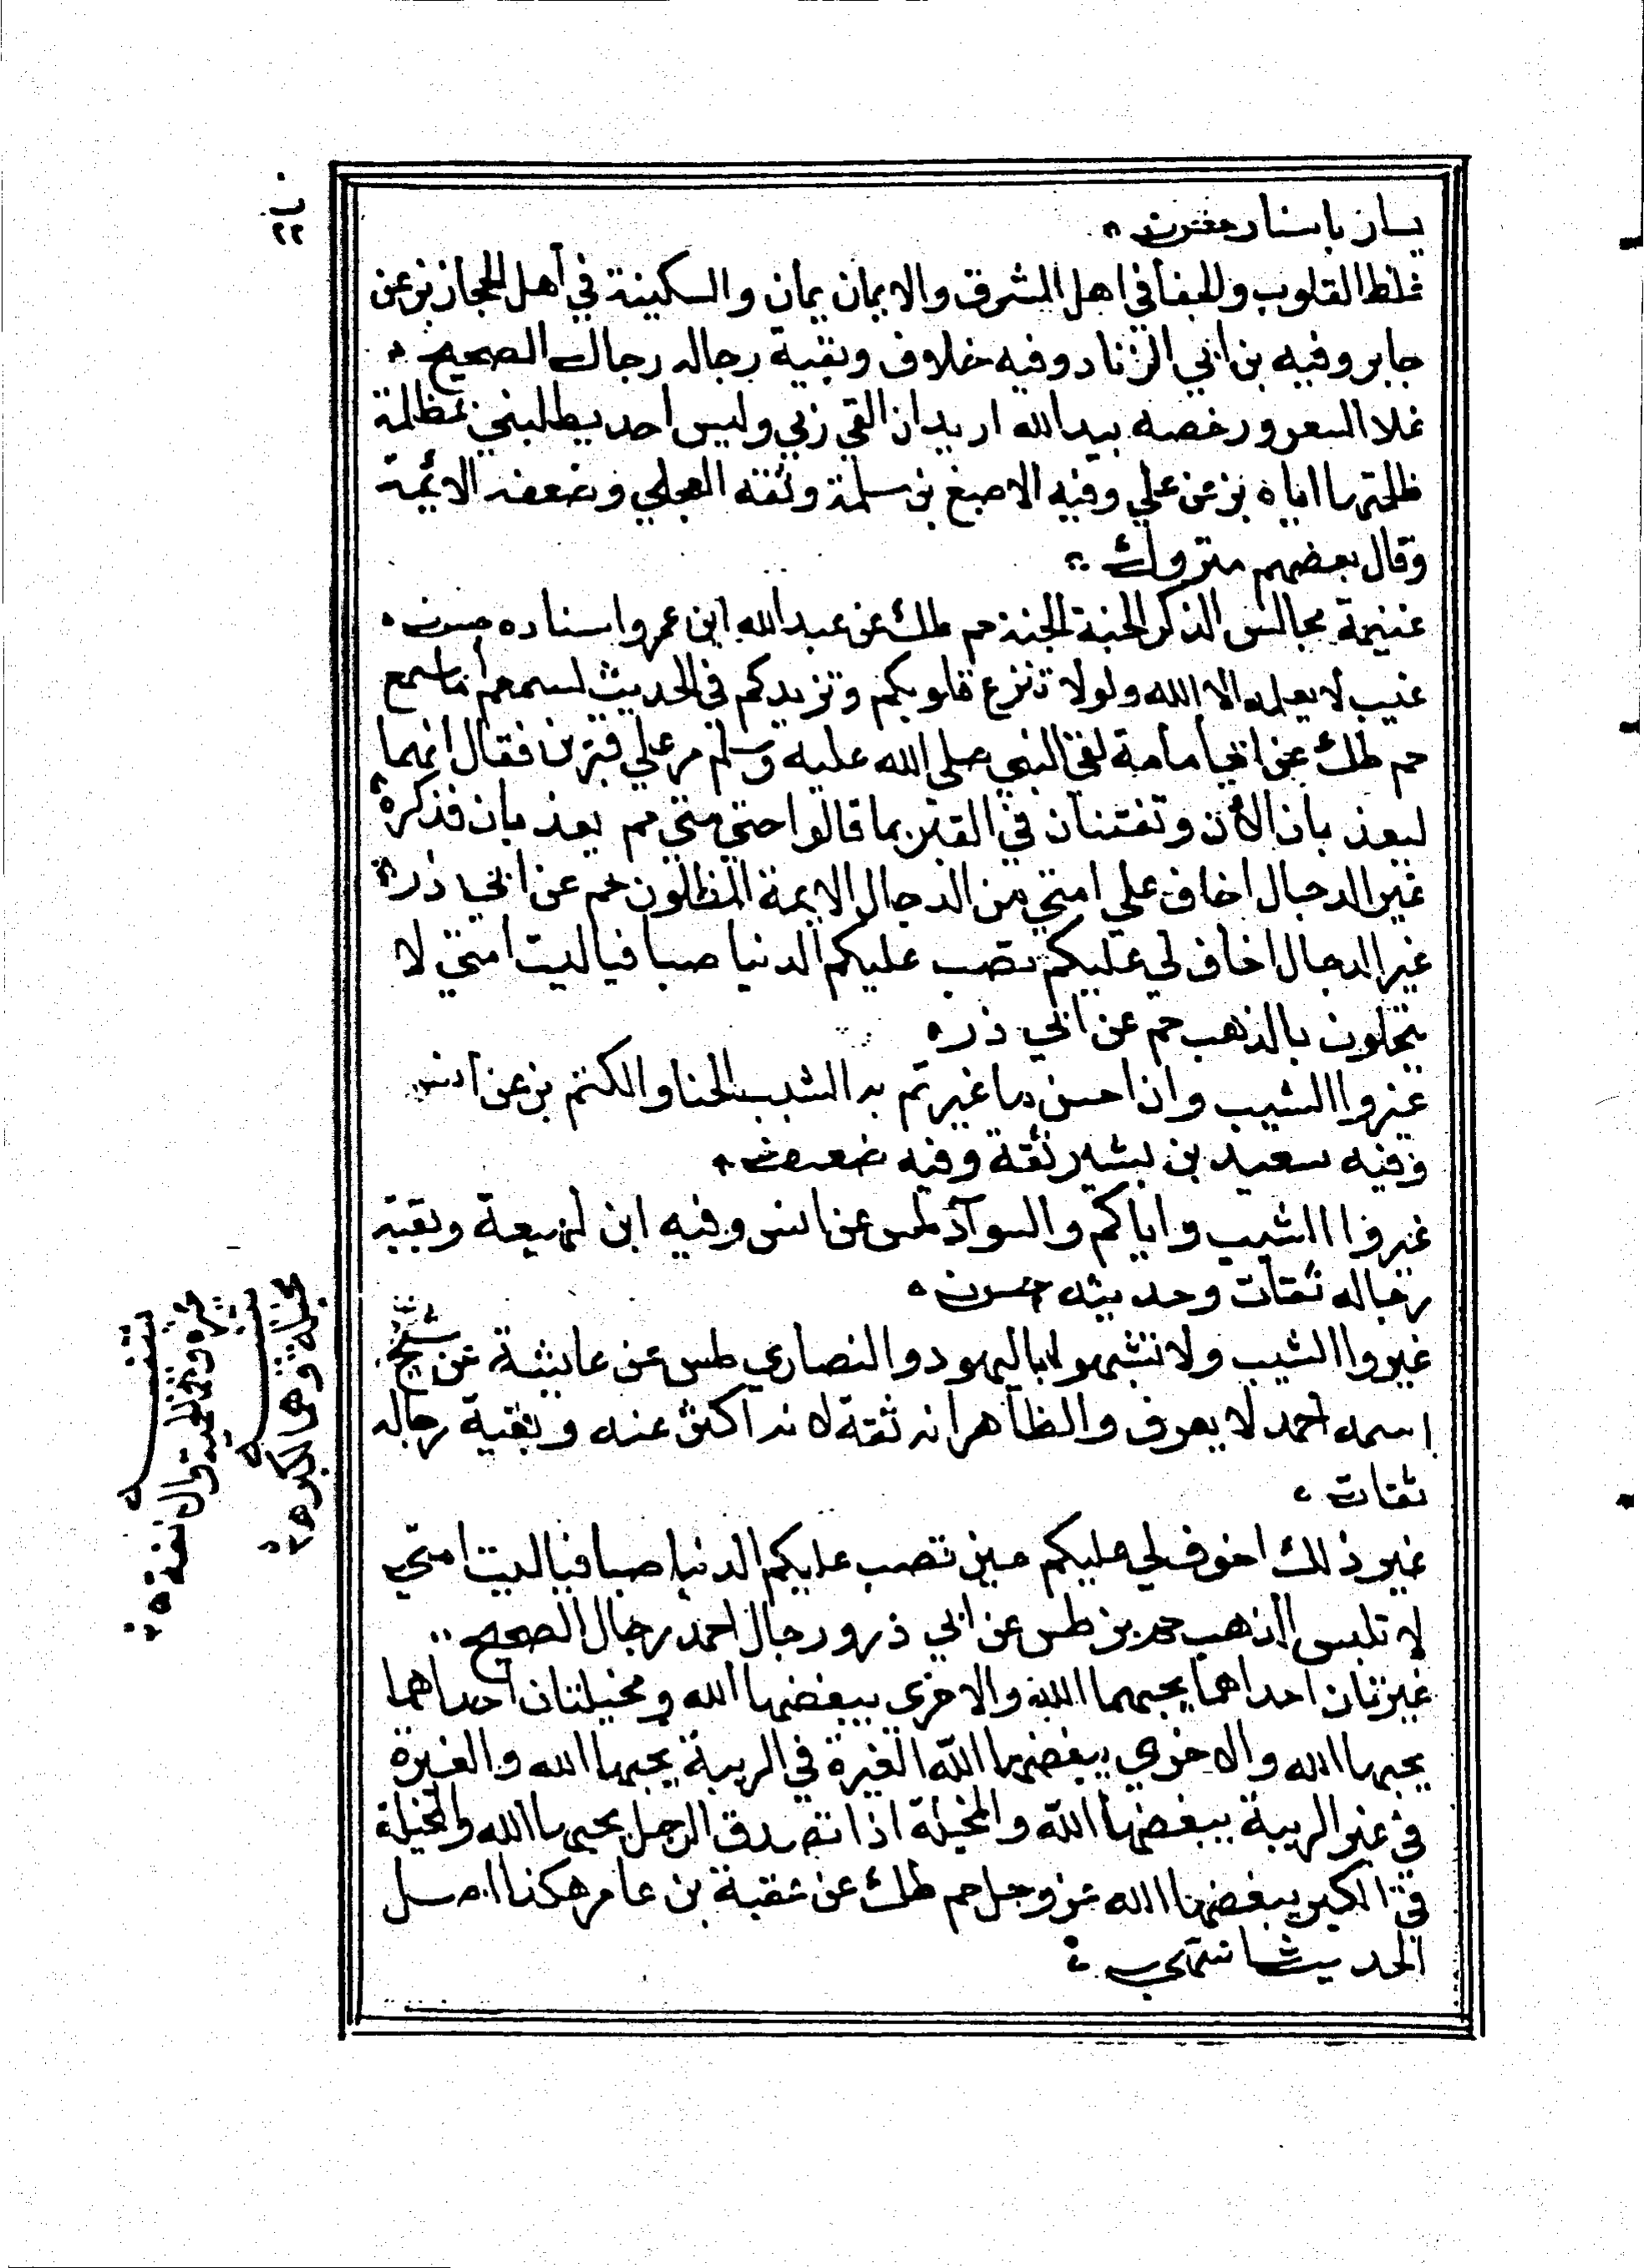 يسار باسناد حسن
غلظ القلوب والجفا في اهل المشرق والايمان يمان والسكينة في اهل الحجاز بز عن
جابر وفيه بن ابي الزناد وفيه خلاف وبقية رجاله رجال الصحيح
غلا السعر ورخصه بيد الله اريد ان القي ربي وليس احد يطلبني بمظلمة
ظلمتها اياه بز عن علي وفيه الاصبغ بن سلمة وثقه العجلي وضعفه الائمة
وقال بعضهم متروك
غنيمة مجالس الذكر الجنة الجنة حم طك عن عبد الله ابن عمرو اسناده حسن
غيب لا يعلمه الا الله ولولا تنزع قلوبكم وتزيدكم في الحديث لسمعتم ما اسمع
حم طك عن ابي أمامة لفي النبي صلي الله عليه وسلم مر علي قبرين فقال انهما
ليعذبان الأن وتفتنان في القبر بما قالوا حتي متي هم يعذبان فذكره
غير الدجال اخاف علي امتي من الدجال الايمة المظلون حم عن ابي ذر
غير الدجال اخاف لي عليكم تصب عليكم الدنيا صبا فياليت امتي لا
يتحلون بالذهب حم عن ابي ذر
غيروا الشيب وان احسن ما غيرتم به الشيب الحنا والكتم بز عن انس
وفيه سعيد بن بشير ثقة وفيه ضعف
غيروا الشيب واياكم والسواد طس عن انس وفيه ابن لهيعة وبقية
رجاله ثقات وحديثه حسن
غيروا الشيب ولا تشبهوا باليهود والنصاري طس عن عايشة عن شيخ
اسمه احمد لا يعرف والظاهر انه ثقة لانه اكثر عنه وبقية رجاله
ثقات
غير ذلك اخوف لي عليكم حين تصب عليكم الدنيا صبا فياليت امتي
لا تلبس الذهب حم بز طس عن ابي ذر ورجال احمد رجال الصحيح
غيرتان احداهما يحبهما الله والاخرى يبغضها الله ومخيلتان احداهما
يحبها الله والاخري يبغضها الله الغيرة في الريبة يحبها الله والغيرة
في غير الريبة يبغضها الله والمخيلة اذا تصدق الرجل يحبها الله والمخيلة
في الكبر يبغضها الله عز وجل حم طك عن عقبة بن عامر هكذا اصل
الحديث انتهي